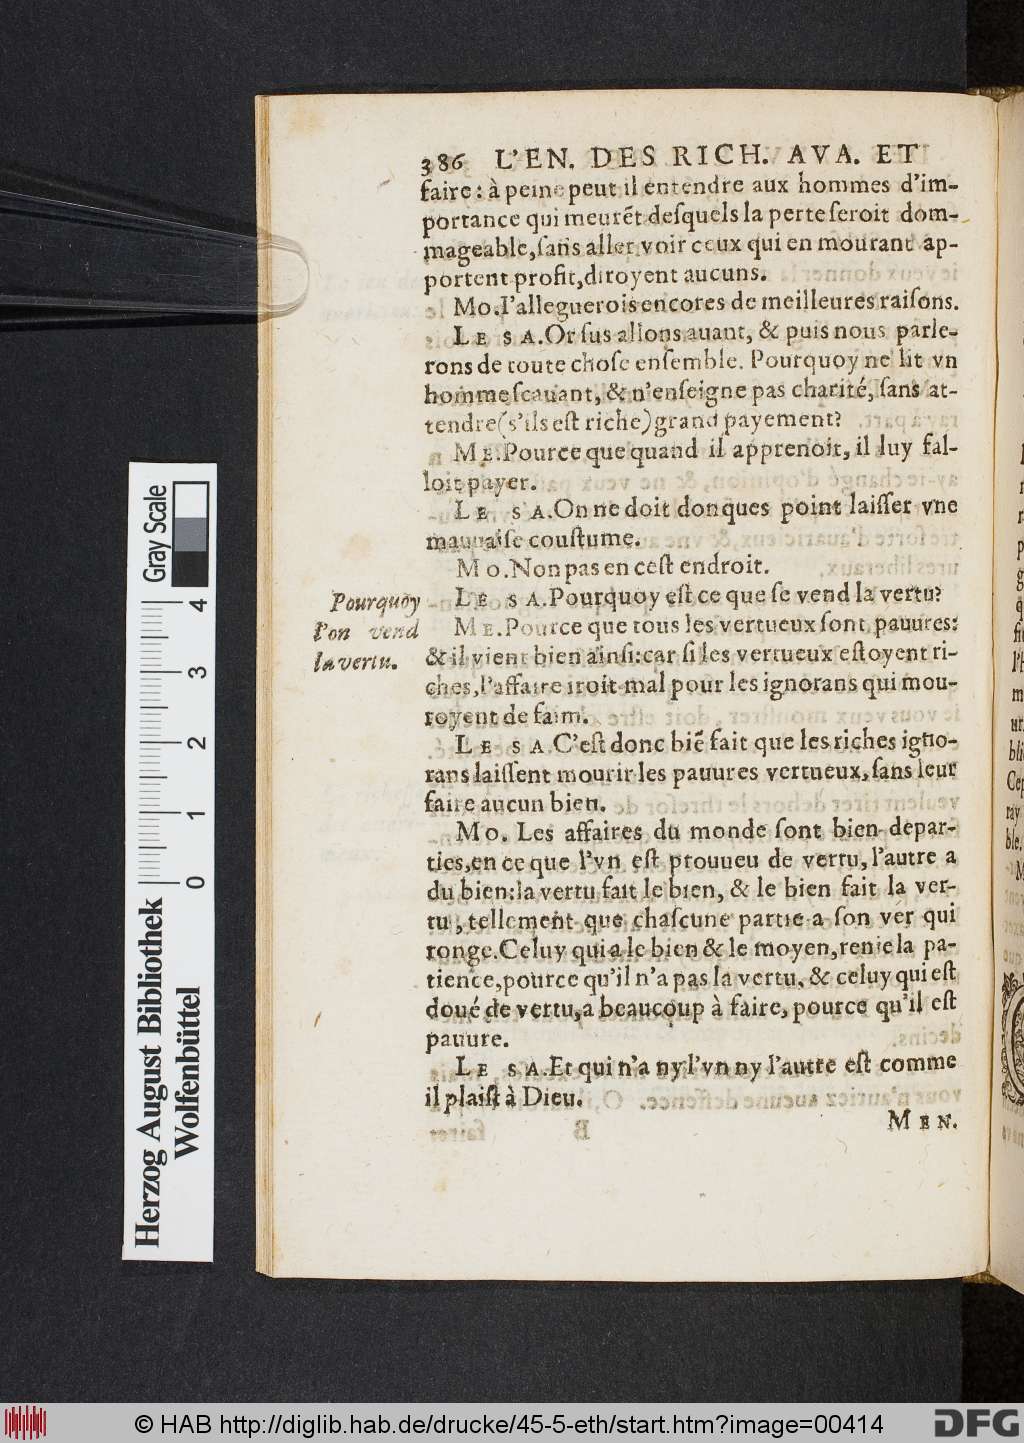 386 L'EN. DES RICH. AVA. ET
faire: à peine peut il entendre aux hommes d'im-
portance qui meurẽt desquels la perte seroit dom-
mageable, sans aller voir ceux qui en mourant ap-
portent profit, diroyent aucuns.
Mo. I'alleguerois encores de meilleures raisons.
LE SA. Or sus allons auant, & puis nous parle-
rons de toute chose ensemble. Pourquoy ne lit vn
homme scauant, & n'enseigne pas charité, sans at-
tendre (s'ils est riche) grand payement?
ME. Pource que quand il apprenoit, il luy fal-
loit payer.
LE SA. On ne doit donques point laisser vne
mauuaise coustume.
Mo. Non pas en cest endroit.
LE SA. Pourquoy est ce que se vend la vertu?
Pourquoy
l'on vend
la vertu.
ME. Pource que tous les vertueux sont pauures:
& il vient bien ainsi: car si les vertueux estoyent ri-
ches, l'affaire iroit mal pour les ignorans qui mou-
royent de faim.
LE SA. C'est donc biẽ fait que les riches igno-
rans laissent mourir les pauures vertueux, sans leur
faire aucun bien.
Mo. Les affaires du monde sont bien depar-
ties, en ce que l'vn est prouueu de vertu, l'autre a
du bien: la vertu fait le bien, & le bien fait la ver-
tu, tellement que chascune partie a son ver qui
ronge. Celuy qui a le bien & le moyen, renie la pa-
tience, pource qu'il n'a pas la vertu, & celuy qui est
doué de vertu, a beaucoup à faire, pource qu'il est
pauure.
LE SA. Et qui n'a ny l'vn ny l'autre est comme
il plaist à Dieu.
MEN.
Herzog August Bibliothek
Wolfenbüttel
0 1 2 3 4
Gray Scale
© HAB http://diglib.hab.de/drucke/45-5-eth/start.htm?image=00414
DFG